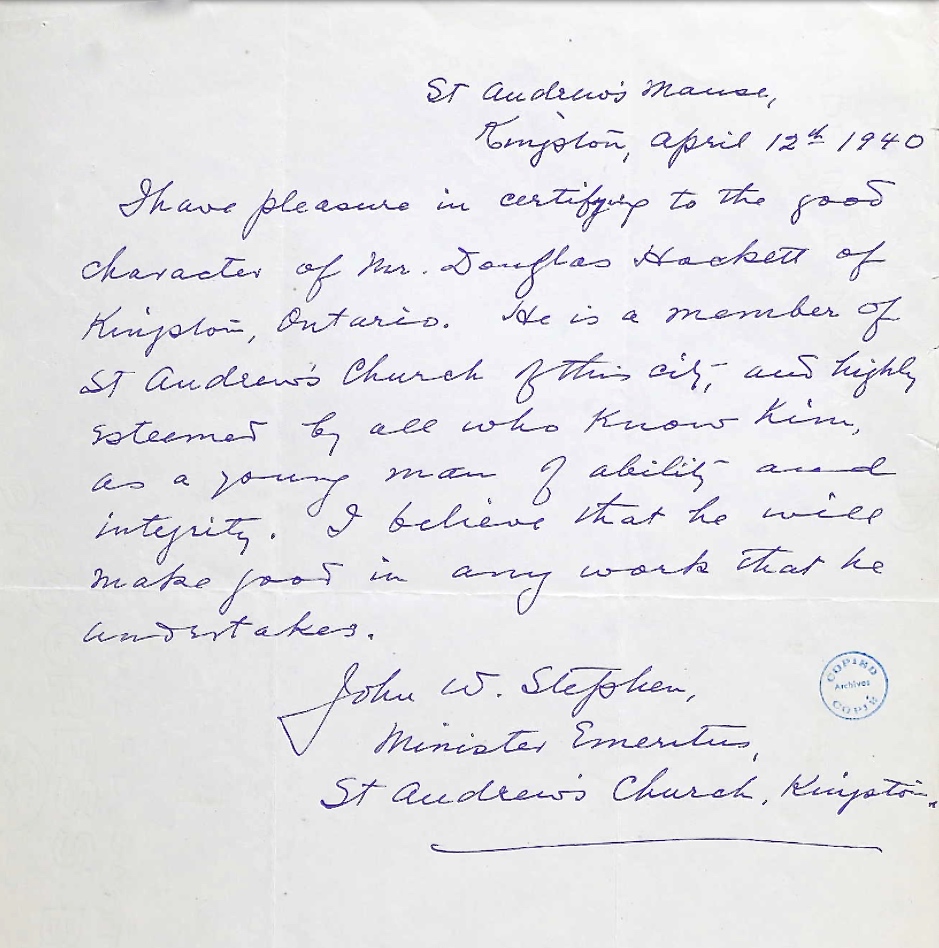 St Andrew's Manse,
Kingston, April 12th 1940
I have pleasure in certifying to the good
character of Mr. Douglas Hackett of
Kingston, Ontario. He is a member of
St Andrew's Church of this city, and highly
esteemed by all who know him,
as a young man of ability and
integrity. I believe that he will
make good in any work that he
undertakes.
John W. Stephen,
Minister Emeritus,
St Andrew's Church, Kingston.
COPIED
Archives
COPIÉ